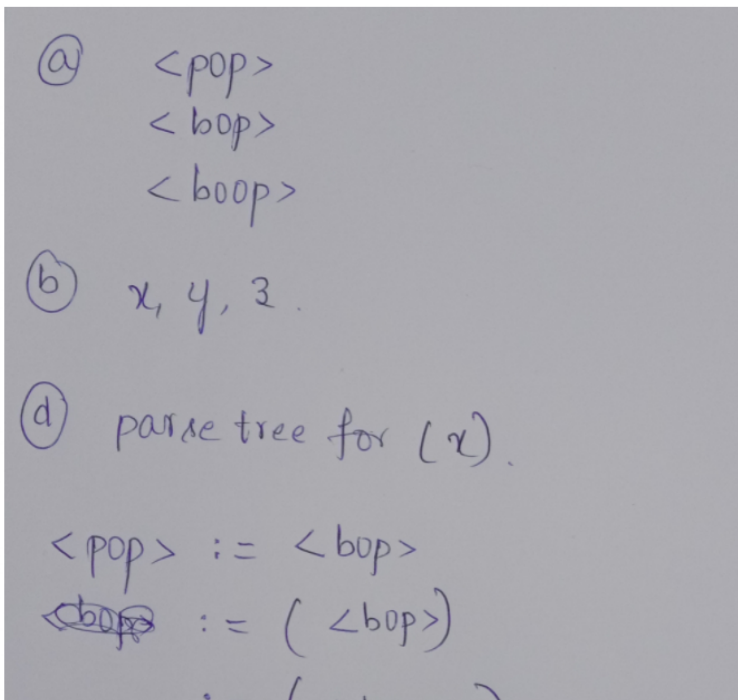 ⓐ <pop>
<bop>
<boop>
ⓑ x, y, z.
ⓓ parse tree for (x).
<pop> := <bop>
:= (<bop>)